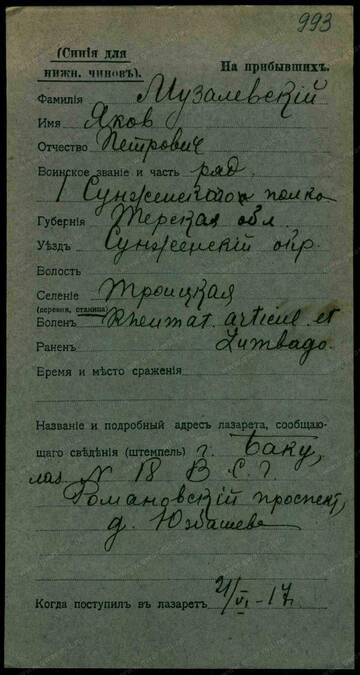 993
(Синія для
нижн. чиновъ).
На прибывшихъ.
Фамилія Музалевскій
Имя Яков
Отчество Петрович
Воинское званіе и часть ряд.
1 Сунженскаго полка
Губернія Терская обл.
Уѣздъ Сунженскій окр.
Волость
Селеніе Троицкая
(деревня, станица)
Боленъ Rheumat. articul. et
Раненъ Lumbago.
Время и мѣсто сраженія
Названіе и подробный адресъ лазарета, сообщаю-
щаго свѣдѣнія (штемпель) г. Баку,
лаз. N 18 В. С. Г.
Романовскій проспект,
д. Юзбашева
Когда поступилъ въ лазаретъ 21/VI-17.